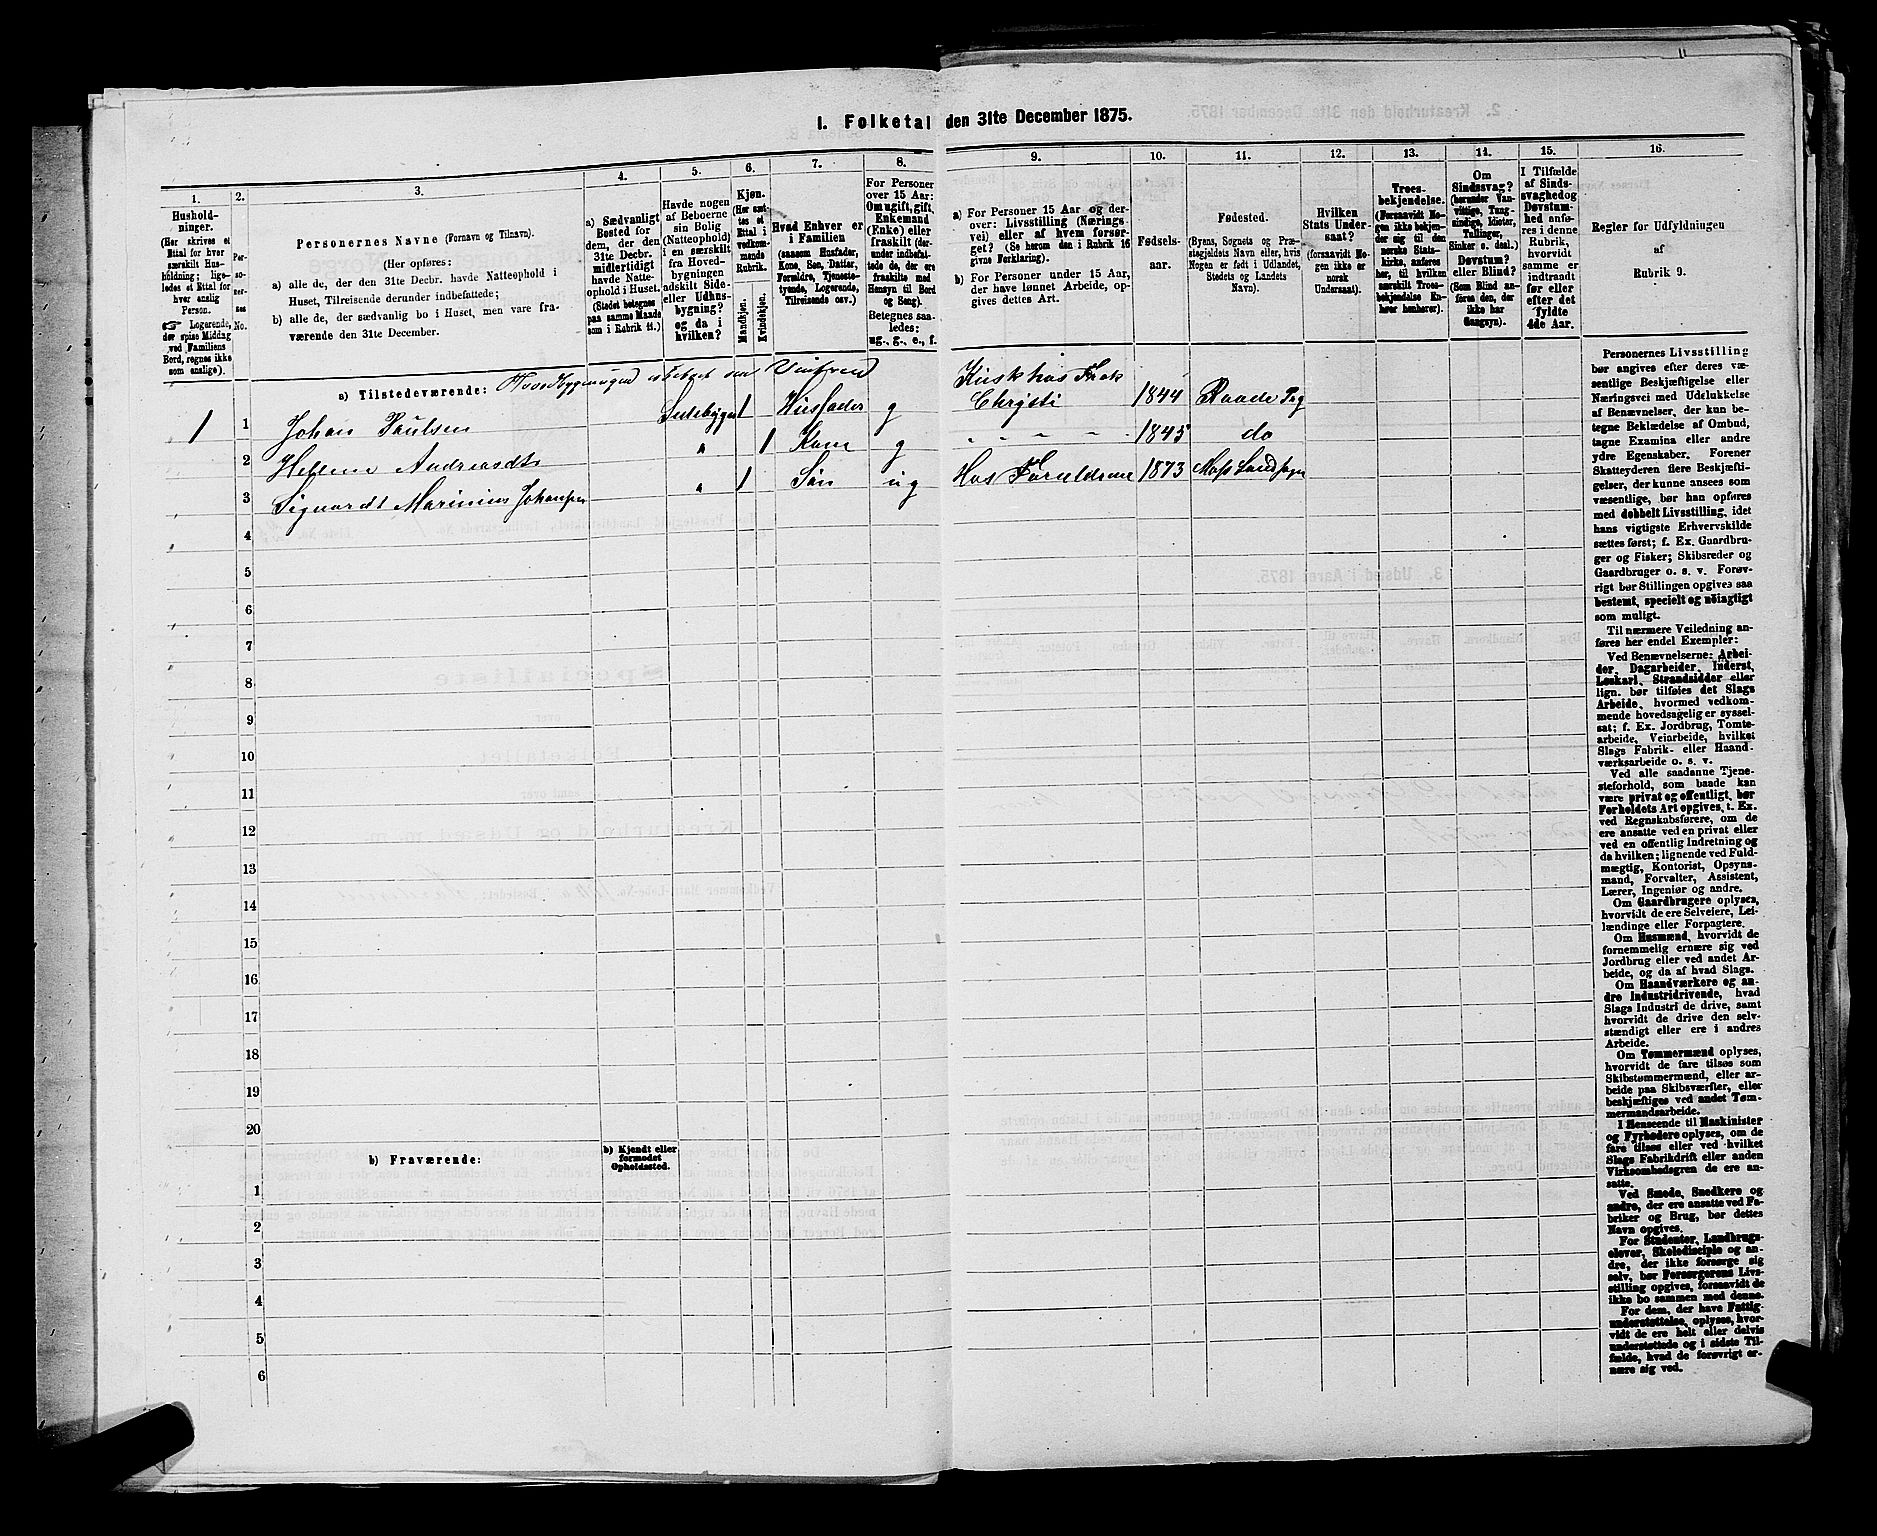 I. Folketal den 31te December 1875.
1.
2.
3.
4.
5.
6.
7.
8.
9.
10.
11.
12.
13.
14.
15.
16.
Hushold-
ninger.
(Her skrives et
Ettal for hver
særskilt Hus-
holdning; lige-
ledes et Ettal for
hver enslig
Person.
☞ Logerende,
der spise Middag
ved Familiens
Bord, regnes ikke
som enslige).
Per-
so-
ner-
nes
No.
Personernes Navne (Fornavn og Tilnavn).
(Her opføres:
a) alle de, der den 31te Decbr. havde Natteophold i
Huset, Tilreisende derunder indbefattede;
b) alle de, der sædvanlig bo i Huset, men vare fra-
værende den 31te December.
a) Sædvanligt
Bosted for
dem, der den
31te Decbr.
midlertidigt
havde Natte-
ophold i Huset.
(Stedet betegnes
paa samme Maade
som i Rubrik 11.)
Havde nogen
af Beboerne
sin Bolig
(Natteophold)
i en særskilt
fra Hoved-
bygningen
adskilt Side-
eller Udhus-
bygning?
og da i
hvilken?
Kjøn.
(Her sæt-
tes et
Ettal i
vedkom-
mende
Rubrik.
Mandkjøn.
Kvindekjøn.
Hvad Enhver er
i Familien
(saasom Husfader,
Kone, Søn, Datter,
Forældre, Tjeneste-
tyende, Logerende,
Tilreisende osv.)
For Personer
over 15 Aar:
Om ugift, gift,
Enkemand
(Enke) eller
fraskilt (der-
under indbefat-
tede de, der ere
fraskilte med
Hensyn til Bord
og Seng).
Betegnes saa-
ledes:
ug., g., e., f.
a) For Personer 15 Aar og der-
over: Livsstilling (Nærings-
vei) eller af hvem forsør-
get? (Se herom den i Rubrik 16
givne Forklaring).
b) For Personer under 15 Aar,
der have lønnet Arbeide, op-
gives dettes Art.
Fødsels-
aar.
Fødested.
(Byens, Sognets og Præ-
stegjeldets Navn eller, hvis
Nogen er født i Udlandet,
Stedets og Landets
Navn).
Hvilken
Stats Under-
saat?
(forsaavidt No-
gen ikke er
norsk
Undersaat).
Troes-
bekjendelse.
(Forsaavidt No-
gen ikke bekjen-
der sig til den
norske Stats-
kirke, anføres
her, til hvilken
særskilt Troes-
bekjendelse En-
hver henhører).
Om
Sindssvag?
(herunder Van-
vittige, Tung-
sindige, Idioter,
Tullinger,
Sinker o. desl.)
Døvstum?
eller Blind?
(Som Blind an-
føres den, der
ikke har
Gangsyn).
I Tilfælde
af Sinds-
svaghed og
Døvstum-
hed anfø-
res i denne
Rubrik,
hvorvidt
samme er
indtraadt
før eller
efter det
fyldte
4de Aar.
Regler for Udfyldningen
af
Rubrik 9.
a) Tilstedeværende: Hovedbygningen ubeboet om Vinteren
1 1 Johan Paulsen Sidebygn 1 Husfader g Kusk hos Frøk Chrysti 1844 Raade Prg
2 Hellene Andreasdt " 1 Kone g - - - - 1845 do
3 Siguardt Marinius Johansen " 1 Søn ug Hos Foreldrene 1873 Moss Landsogn
4
5
6
7
8
9
10
11
12
13
14
15
16
17
18
19
20
b) Fraværende:
b) Kjendt eller
formodet
Opholdssted.
1
2
3
4
5
6
Personernes Livsstilling
bør angives efter deres væ-
sentlige Beskjæftigelse eller
Næringsvei med Udelukkelse
af Benævnelser, der kun be-
tegne Beklædelse af Ombud,
tagne Examina eller andre
ydre Egenskaber. Forener
Skatteyderen flere Beskjæfti-
gelser, der kunne ansees som
væsentlige, bør han opføres
med dobbelt Livsstilling, idet
hans vigtigste Erhvervskilde
sættes først; f. Ex. Gaardbru-
ger og Fisker; Skibsreder og
Gaardbruger o. s. v. Forøv-
rigt bør Stillingen opgives saa
bestemt, specielt og nöiagtigt
som muligt.
Til nærmere Veiledning an-
føres her endel Exempler:
Ved Benævnelserne: Arbei-
der, Dagarbeider, Inderst,
Løskarl, Strandsidder eller
lign. bør tilføies det Slags
Arbeide, hvormed vedkom-
mende hovedsagelig er syssel-
sat; f. Ex. Jordbrug, Tomte-
arbeide, Veiarbeide, hvilket
Slags Fabrik- eller Haand-
værksarbeide o. s. v.
Ved alle saadanne Tjene-
steforhold, som baade kan
være privat og offentligt, bør
Forholdets Art opgives, t. Ex.
ved Regnskabsførere, om de
ere ansatte ved en privat eller
ved en offentlig Indretning og
da hvilken; lignende ved Fuld-
mægtig, Kontorist, Opsyns-
mand, Forvalter, Assistent,
Lærer, Ingeniør og andre.
Om Gaardbrugere oplyses,
hvorvidt de ere Selveiere, Lei-
lændinge eller Forpagtere.
Om Husmænd, hvorvidt de
fornemmelig ernære sig ved
Jordbrug eller ved andet Ar-
beide, og da af hvad Slags.
Om Haandværkere og an-
dre Industridrivende, hvad
Slags Industri de drive, samt
hvorvidt de drive den selv-
stændigt eller ere i andres
Arbeide.
Om Tømmermænd oplyses,
hvorvidt de fare tilsøs som
Skibstømmermænd, eller ar-
beide paa Skibsværfter, eller
beskjæftiges ved andet Tøm-
mermandsarbeide.
I Henseende til Maskinister
og Fyrbødere oplyses, om de
fare tilsøs eller ved hvilket
Slags Fabrikdrift eller anden
Virksomhedsgren de ere an-
satte.
Ved Smede, Snedkere og
andre, der ere ansatte ved Fa-
briker og Brug, bør dettes
Navn opgives.
For Studenter, Landbrugs-
elever, Skoledisciple og an-
dre, der ikke forsørge sig
selv, bør Forsørgerens Livs-
stilling opgives, forsaavidt de
ikke bo sammen med denne.
For dem, der have Fattig-
understøttelse, oplyses, hvor-
vidt de ere helt eller delvis
understøttede og i sidste Til-
fælde, hvad de forøvrigt er-
nære sig ved.